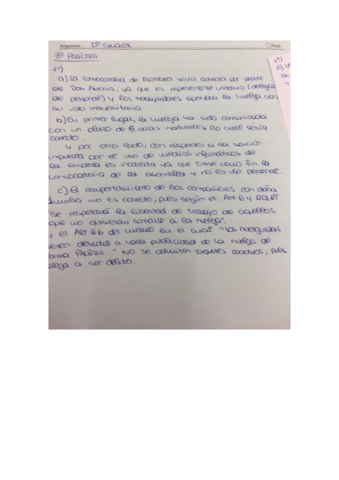 Asignatura Dº Sindical Final
8º Práctica
1º)
a) La convocatoria de Asamblea sería correcta por parte
de Don Antonio, ya que es representante unitario (delegado
de personal) y los trabajadores apoyan la huelga con
su voto mayoritario.
b) En primer lugar, la huelga ha sido comunicada
con un plazo de 5 días naturales, lo cual sería
correcto
Y por otro lado, con respecto a la sanción
impuesta por el uso de medios informáticos de
la empresa es incorrecta ya que tiene como fin la
convocatoria de la asamblea y no es uso personal.
c) El comportamiento de los compañeros con doña
no es correcto, pues según el Art 6.4 RDLRT
"Se respetará la libertad de trabajo de aquellos
que no quisieran sumarse a la huelga".
y el Art 6.6 del mismo en el cual "Los huelguistas
tienen derecho a hacer publicidad de la huelga de
forma pacífica". No se admiten piquetes coactivos, pues
llega a ser delito.